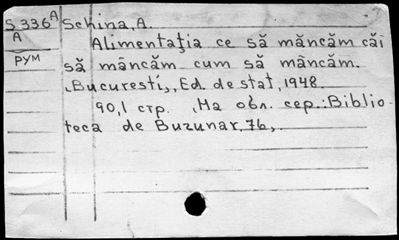 S 336 A Schina, A.
A Alimentaţia ce să mâncăm căi
РУМ să mâncăm cum să mâncăm.
Bucuresti, Ed. de stat, 1948.
90,1 стр. На обл. сер.: Biblio-
teca de Buzunar, 76,.